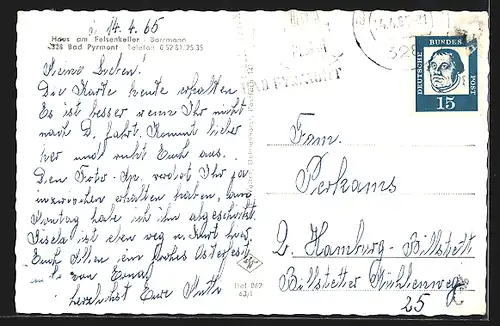 14. 4. 65
Haus am Felsenkeller - Borrmann
328 Bad Pyrmont Telefon 0 52 81/25 35
Meine Lieben!
Die Karte heute erhalten
Es ist besser wenn Ihr nicht
nach D. fahrt. Kommt lieber
her und ruht Euch aus.
Den Foto-Ap. werdet Ihr ja
inzwischen erhalten haben, am
Montag habe ich ihn abgeschickt.
Gisela ist eben weg u. Kurt hier.
Euch allen ein frohes Osterfest
von Emma
herzlichst Eure Mutti
Best 062
63/1
BAD PYRMONT
328
DEUTSCHE BUNDESPOST
15
Fam.
Perkams
2. Hamburg-Billstedt
Billstedter Mühlenweg
25